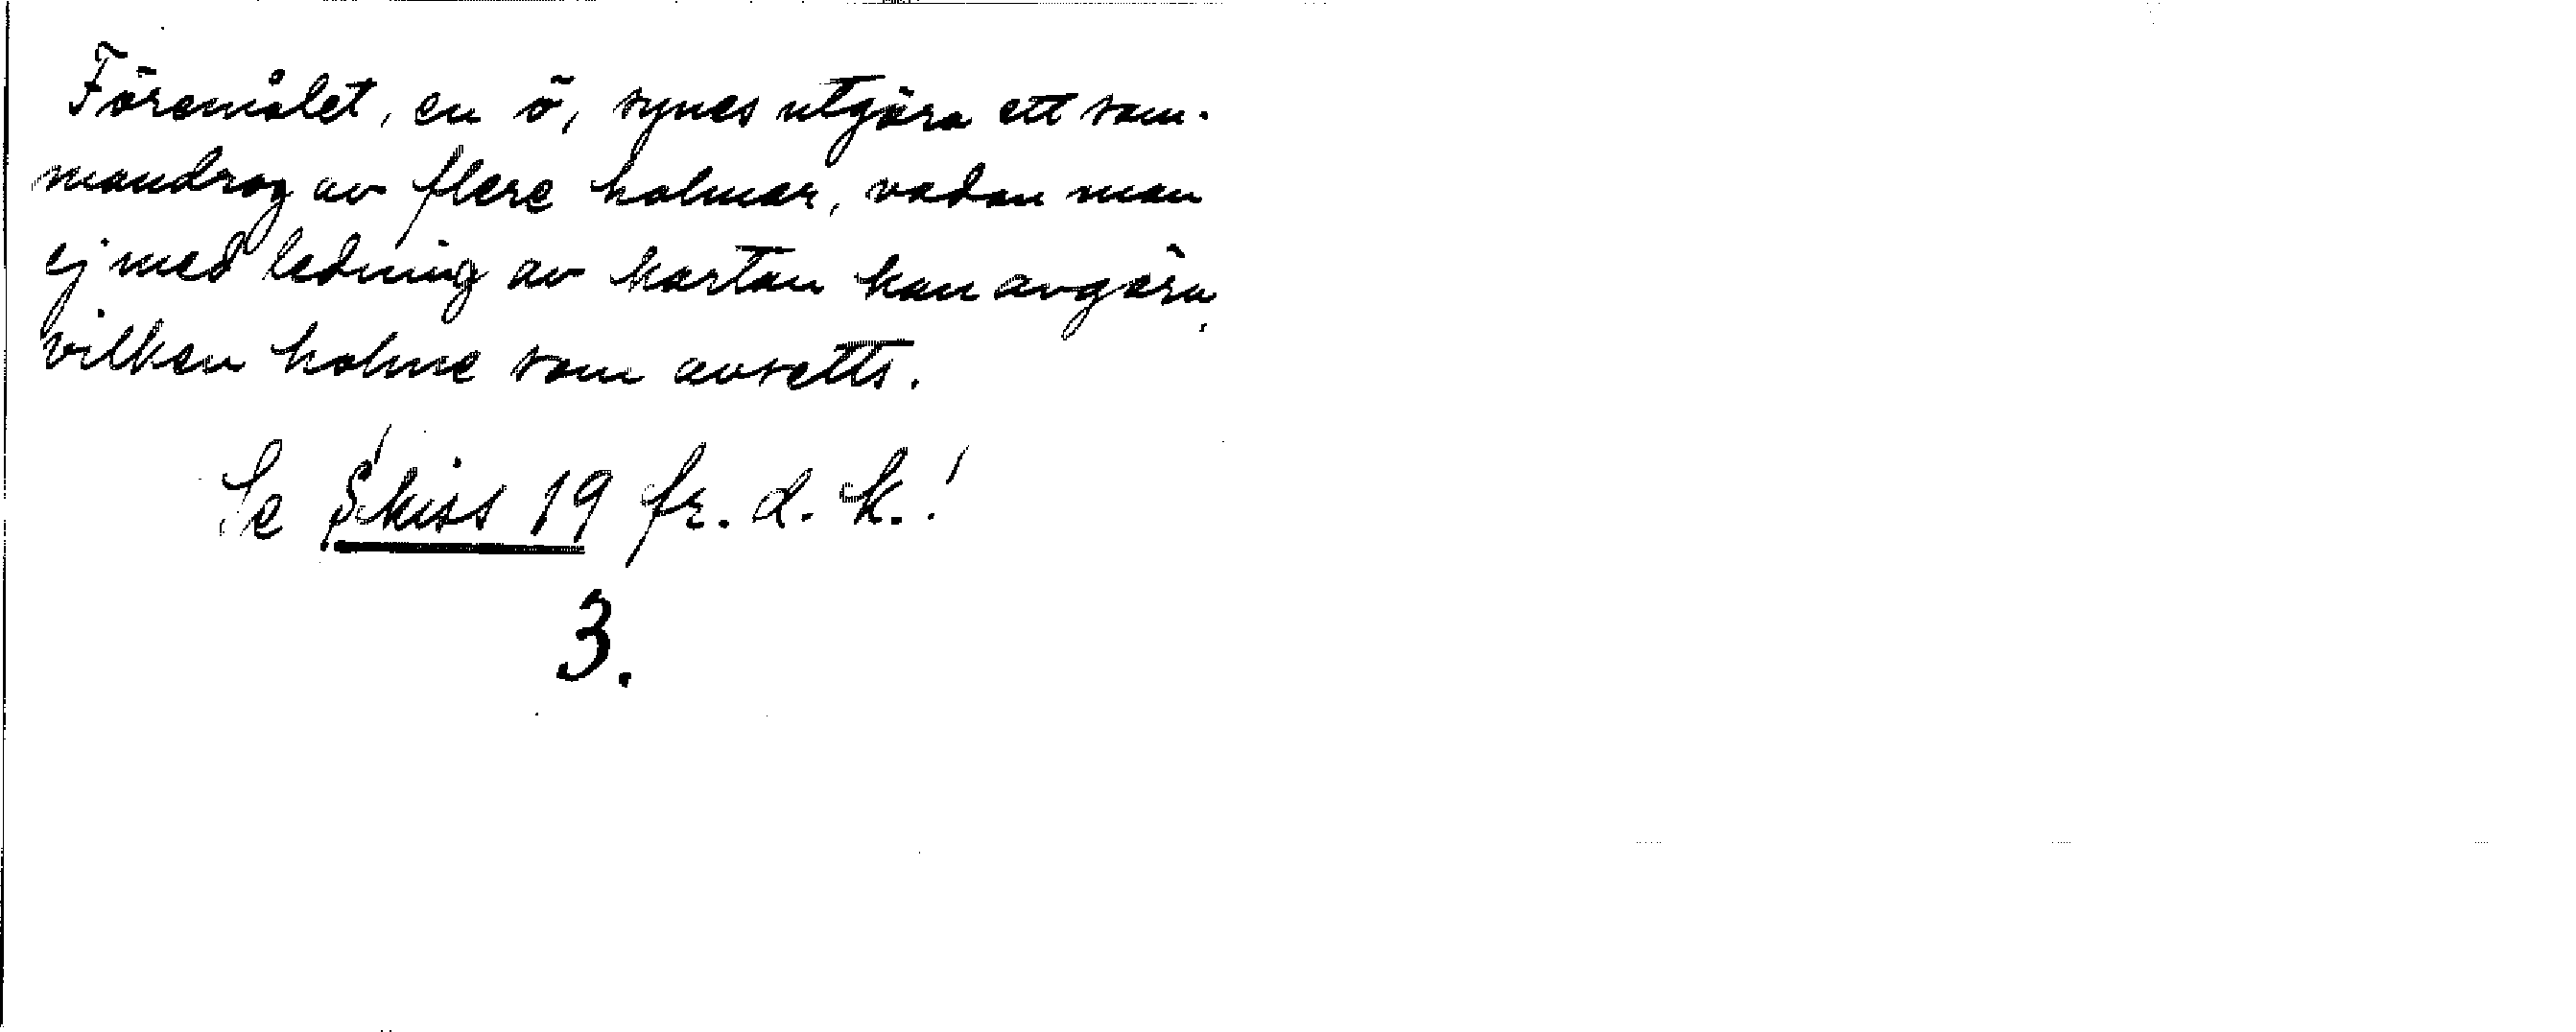 Föremålet, en ö, synes utgöra ett sam-
mandrag av flere holmar, vadan man
ej med ledning av kartan kan avgöra,
vilken holme som avsetts.
Se Skiss 19 fr. d. k.!
3.